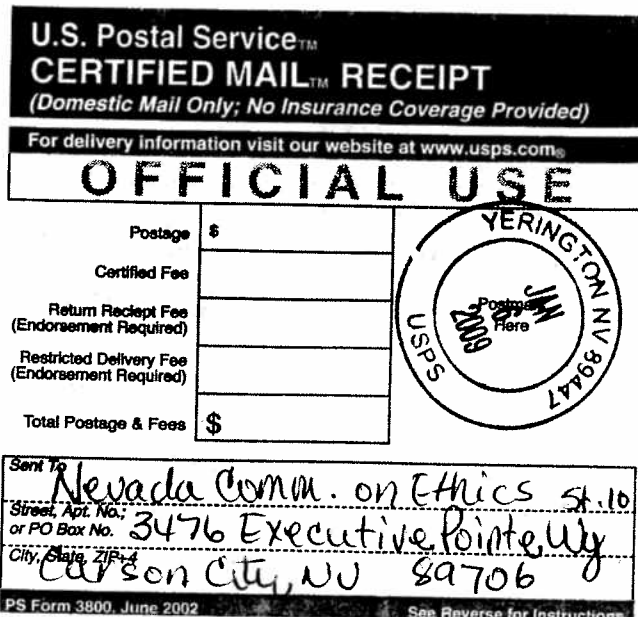 U.S. Postal Service™
CERTIFIED MAIL™ RECEIPT
(Domestic Mail Only; No Insurance Coverage Provided)
For delivery information visit our website at www.usps.com®
OFFICIAL USE
Postage $
Certified Fee
Return Reciept Fee
(Endorsement Required)
Restricted Delivery Fee
(Endorsement Required)
Total Postage & Fees $
YERINGTON NV 89447
USPS
Postmark
Here
JAN
2009
Sent To
Nevada Comm. on Ethics St. 10
Street, Apt. No.;
or PO Box No. 3476 Executive Pointe Wy
City, State, ZIP+4
Carson City, NV 89706
PS Form 3800, June 2002 See Reverse for Instructions